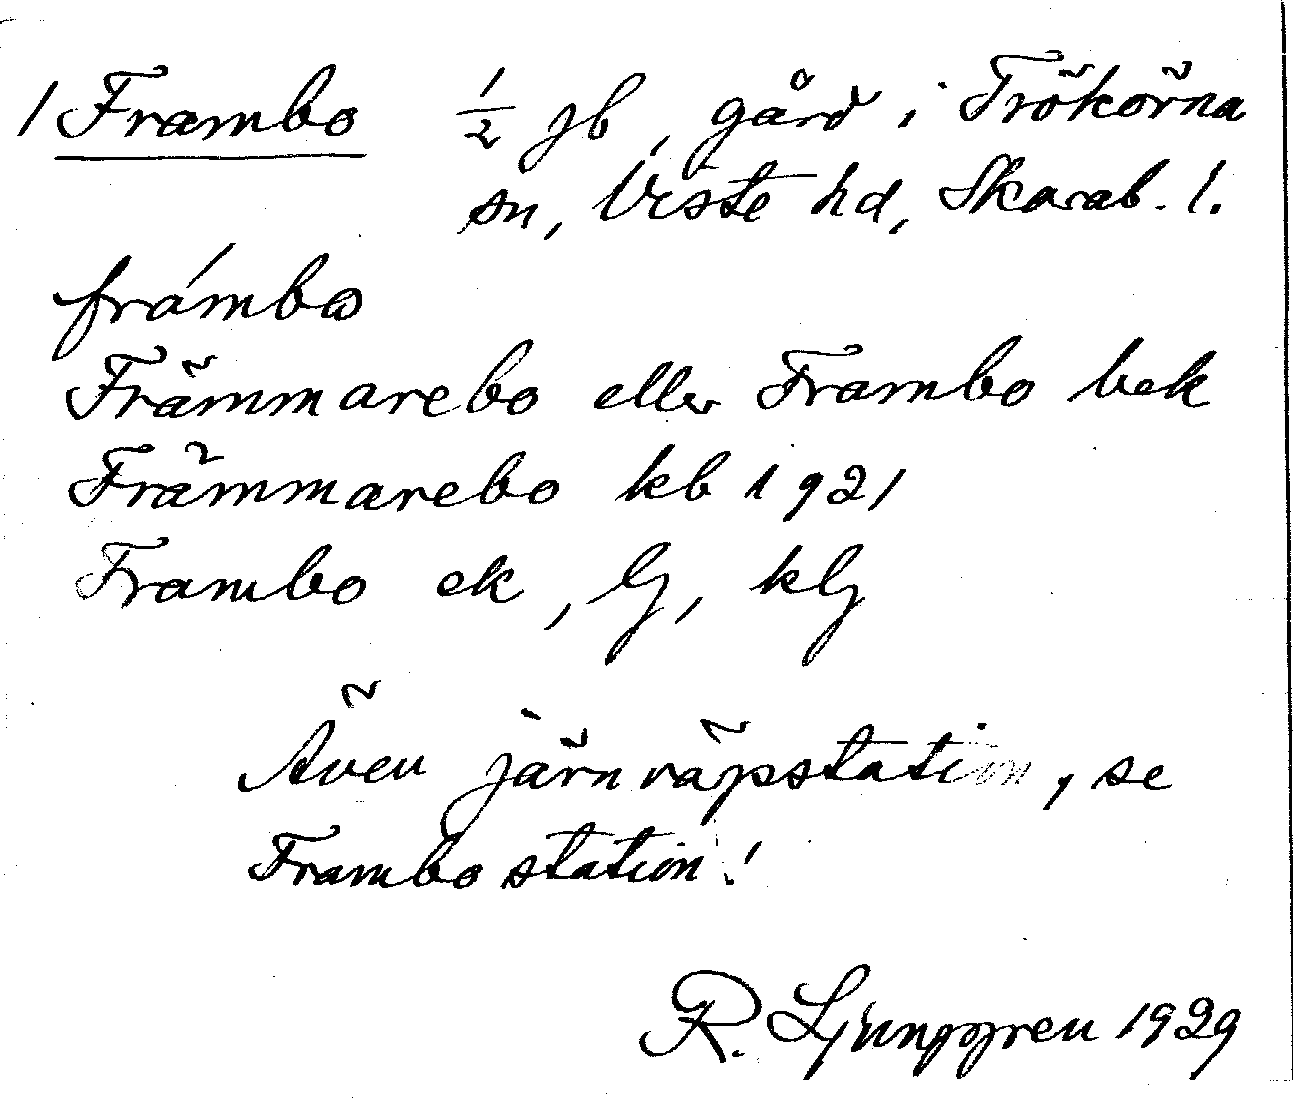 1 Frambo 1/2 jb, gård i Trökörna
sn, Viste hd, Skarab. l.
frámbω
Främmarebo eller Frambo bek
Främmarebo kb 1921
Frambo ek, G, kG
Även järnvägsstation, se
Frambo station!
R. Ljunggren 1929